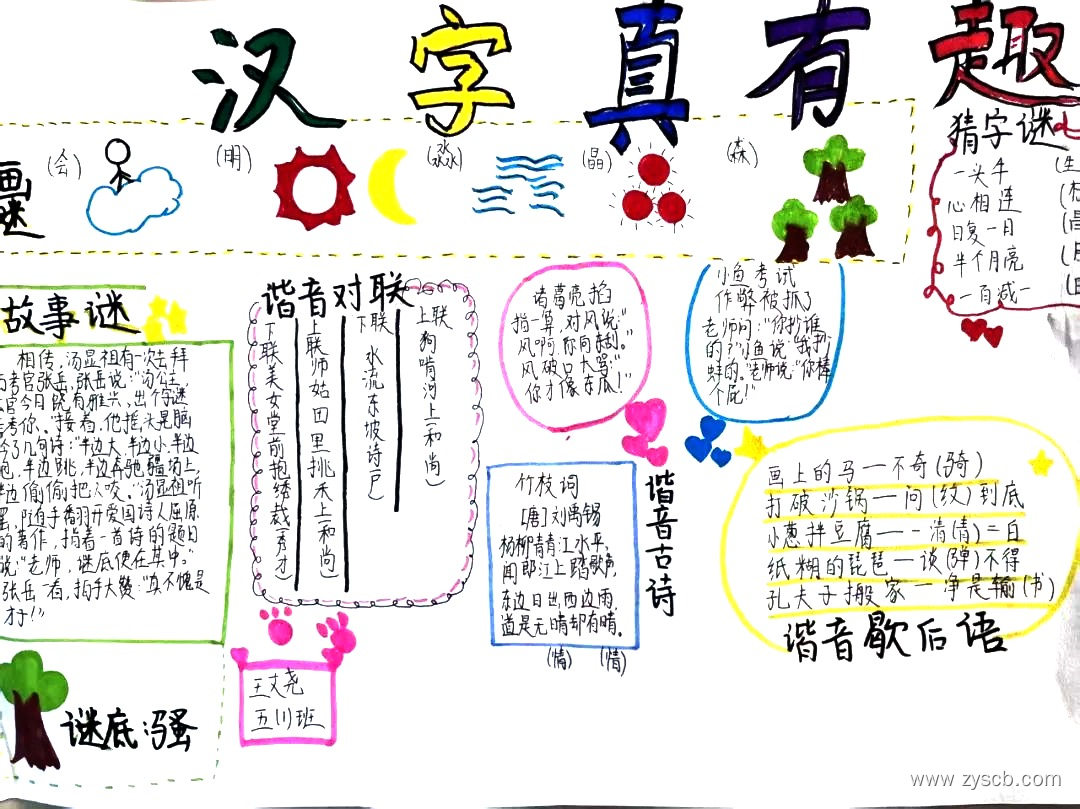 汉字真有趣
画谜
(会)
(明)
(淼)
(晶)
(森)
猜字谜
一头牛
心相连
日复一日
半个月亮
一百减一
故事谜
相传,汤显祖有一次去拜
考官张岳,张岳说:"汤公主,
官今日饶有雅兴,出个字谜
考你。"接着,他摇头晃脑
了几句诗:"半边大,半边小,半边
跑,半边跳,半边奔驰疆场上,
边偷偷把人咬。汤显祖听
罢,随手翻开爱国诗人屈原
的著作,指着一首诗的题目
说:"老师,谜底便在其中。"
张岳一看,拍手大赞:"真不愧是
才子!"
谜底:骚
谐音对联
上联 狗啃河上(和尚)
下联 水流东坡诗(尸)
上联师姑田里挑禾上(和尚)
下联美女堂前抱绣裁(秀才)
王丈尧
五川班
诸葛亮掐
指一算,对风说:"
风啊,你向东刮。"
风破口大骂:"
你才像东瓜!"
小鱼考试
作弊被抓了
老师问:"你抄谁
的?"小鱼说:"我抄
蚌的。"老师说:"你棒
个屁!"
竹枝词
[唐]刘禹锡
杨柳青青江水平,
闻郎江上踏歌声,
东边日出西边雨,
道是无晴却有晴。
(情) (情)
谐音古诗
画上的马一不奇(骑)
打破沙锅一问(纹)到底
小葱拌豆腐一一清(青)二白
纸糊的琵琶一谈(弹)不得
孔夫子搬家一净是输(书)
谐音歇后语
www.zyscb.com